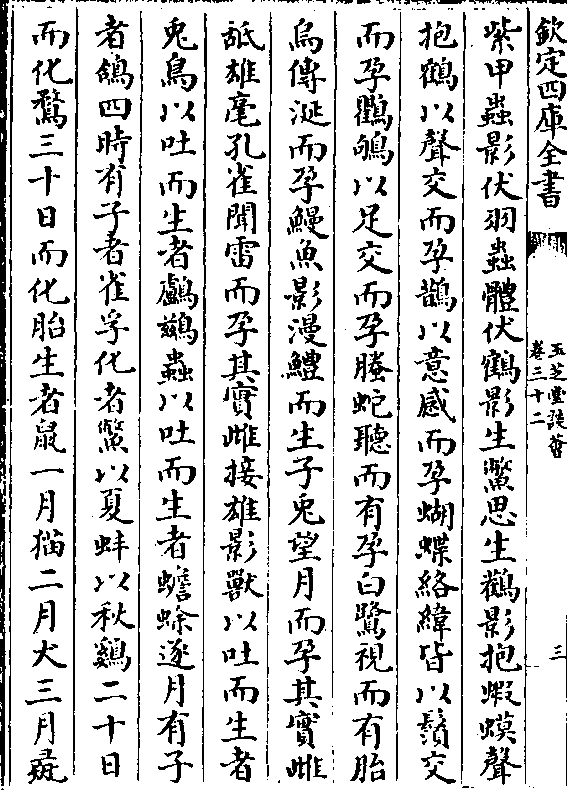 欽定四庫全書
玉芝堂談薈
卷三十二
三
紫甲蟲影伏羽蟲體伏鶴影生鱉思生鸛影抱蝦蟆聲
抱鶴以聲交而孕鵲以意感而孕蝴蝶絡緯皆以鬚交
而孕鸜鵒以足交而孕螣蛇聽而有孕白鷺視而有胎
烏傳涎而孕鰻魚影漫鱧而生子兎望月而孕其實雌
舐雄毫孔雀聞雷而孕其實雌接雄影獸以吐而生者
兎鳥以吐而生者鸕鷀蟲以吐而生者蟾蜍逐月有子
者鴿四時有子者雀孚化者鱉以夏蚌以秋鷄二十日
而化鶩三十日而化胎生者鼠一月猫二月犬三月彘